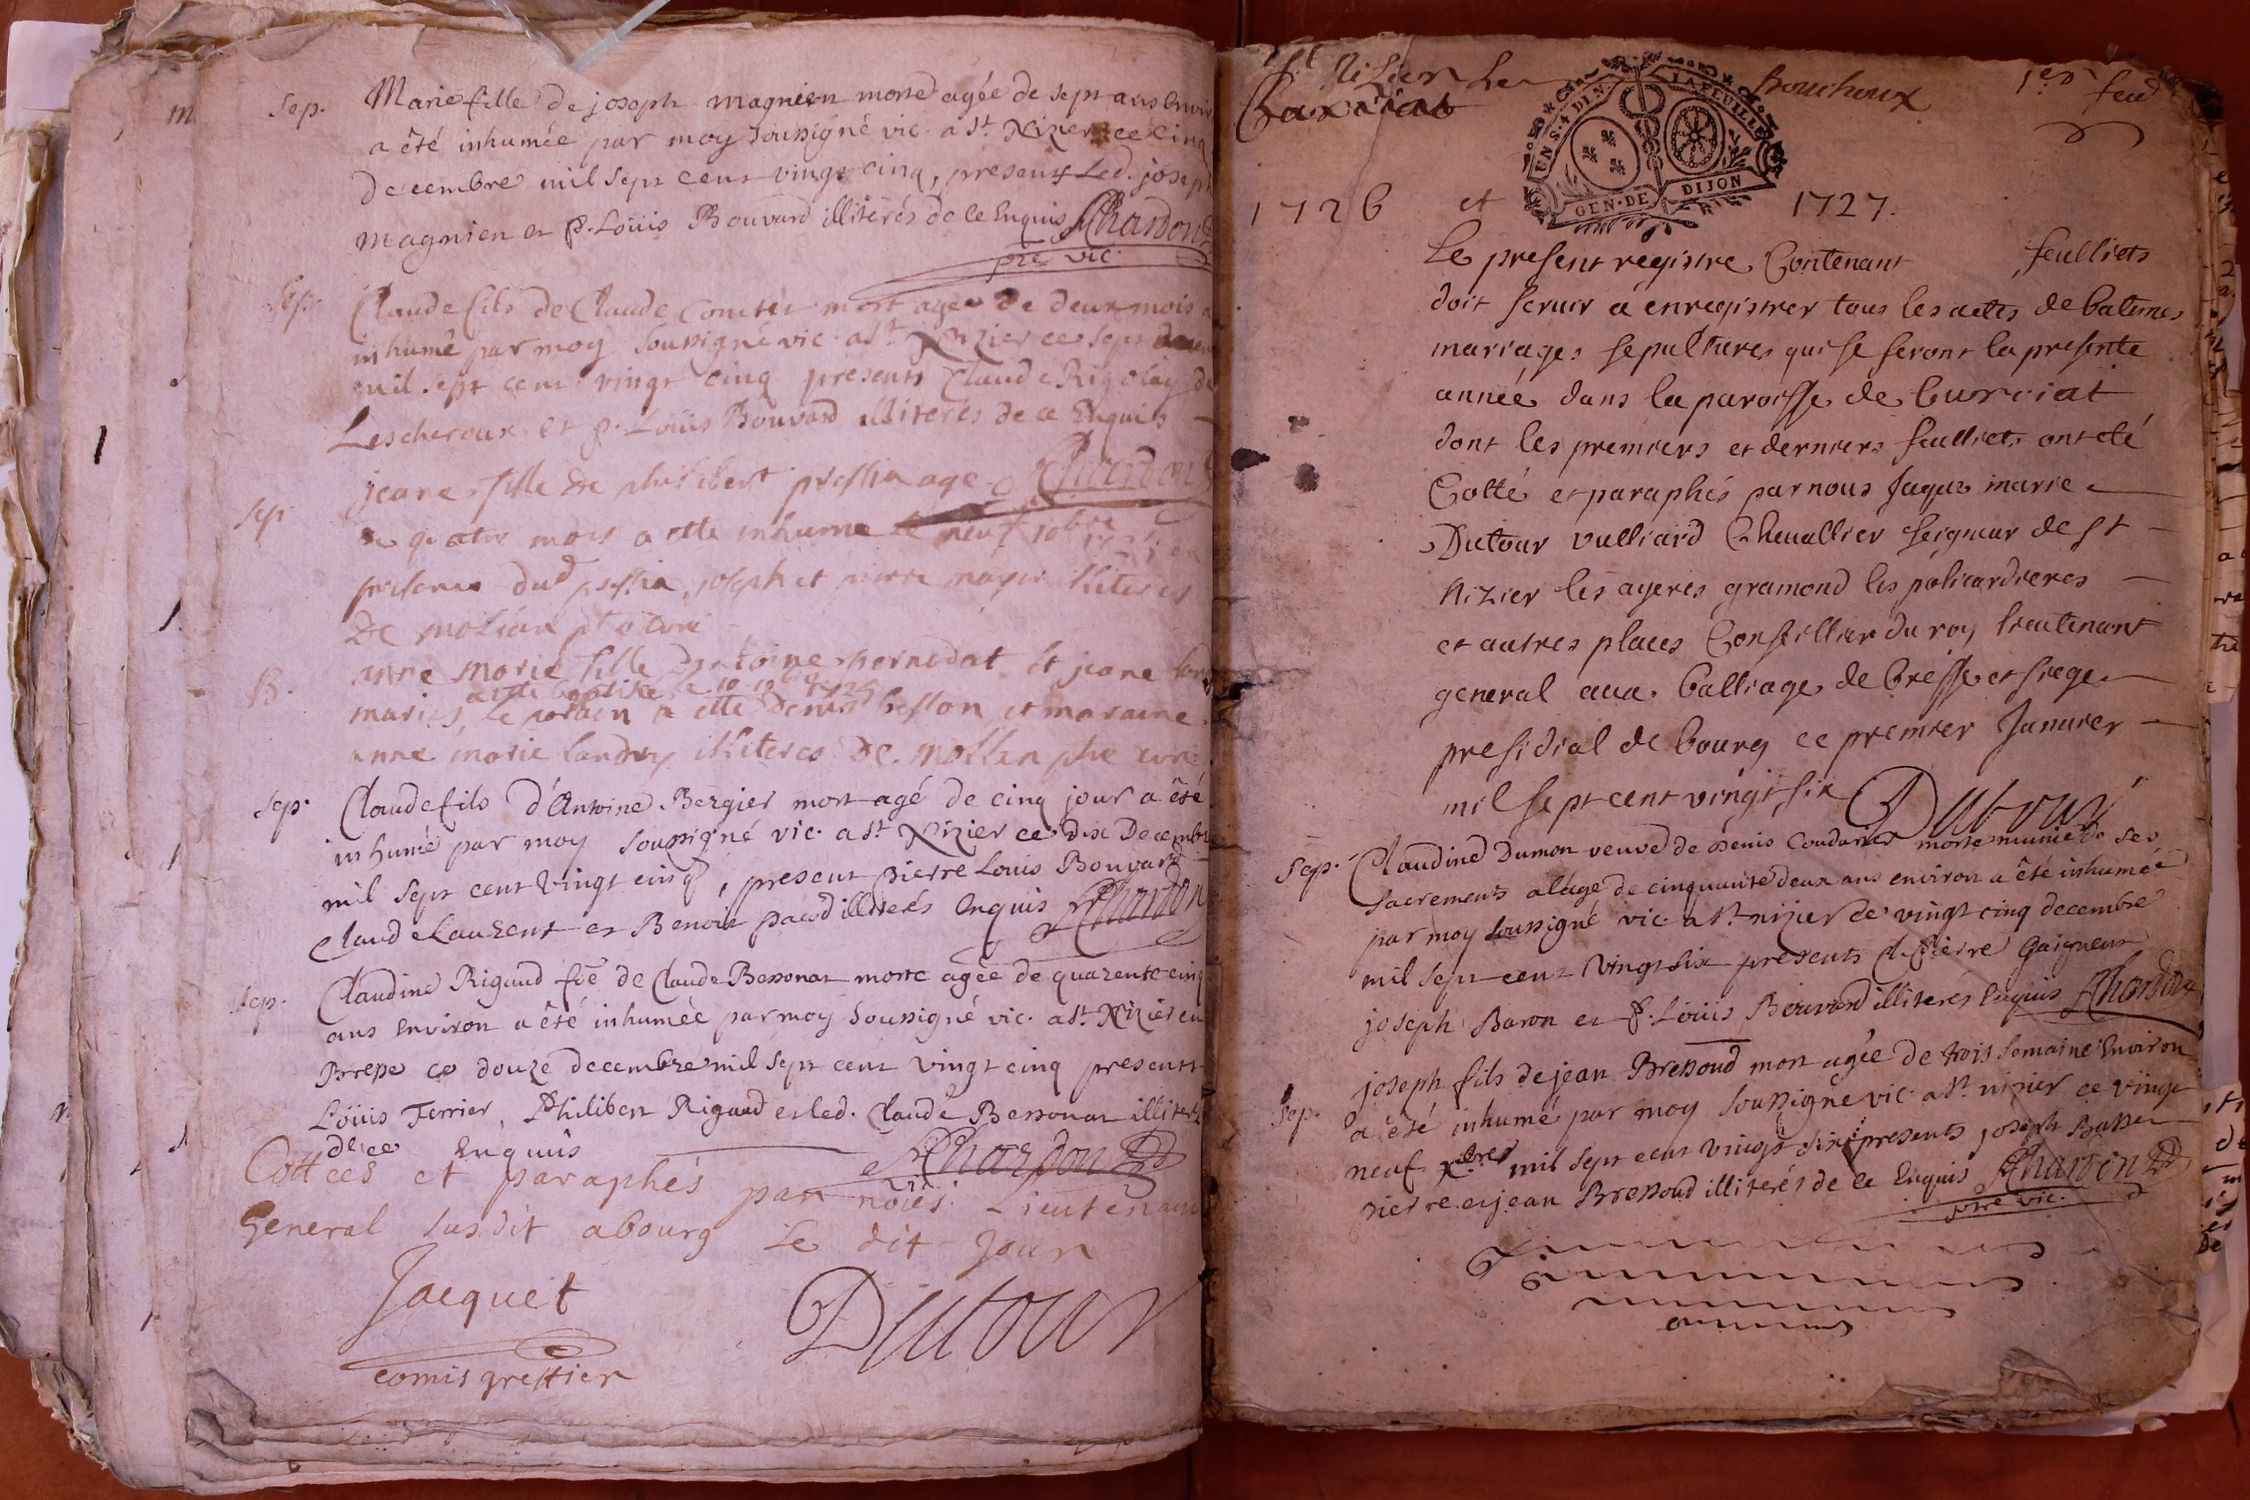 Sep. Marie fille de joseph magnien morte agée de sept ans
a êté inhumée par moy soussigné vic. a St. Nizier ce cinq
decembre mil sept cent vingt cinq, presents led. joseph
magnien et p. Loüis Bouvard illiterés de ce Enquis Chardon
ptre vic.
Sep. Claude fils de Claude mort agée de deux mois
inhumé par moy soussigné vic. a St. Nizier ce sept
mil sept cent vingt cinq presents Claude Rigolay de
Lescheroux et p. Loüis Bouvard illiterés de ce Enquis
Chardon
Sep jeane fille de philibert pressia age
de quatre mois a este inhume le neuf 10bre
presence dud pessia, joseph et pierre illiteres
B. anne marie fille dantoine pernodat et jeane
a este baptise le 10
maries, le parain a este denis besson et maraine
anne marie landry illiteres
Sep. Claude fils d'Antoine Bergier mort agé de cinq jour a êté
inhumé par moy soussigné vic. a St. Nizier ce dix Decembre
mil sept cent vingt cinq, present pierre Louis Bouvard
Claude Laurent et Benoit pacod illiterés Enquis Chardon
Sep. Claudine Rigaud fe de Claude Bessonat morte agée de quarente cinq
ans Environ a êté inhumée par moy soussigné vic. a St. Nizier en
Bresse ce douze decembre mil sept cent vingt cinq presents
Loüis Ferrier, Philibert Rigaud et led. Claude Bessonat illiterés
de ce Enquis Chardon
Cottees et paraphés par nous Lieutenant
General susdit abourg le dit Jour
Jacquet Dutour
comis greffier
St Nisier Le Bouchoux 1er feul
UN S. 4 DEN. LA FEUILLE
GEN. DE DIJON
1726 et 1727.
Le present registre Contenant feulliets
doit servir a enregistrer tous les actes de batemes
mariages sepultures qui se feront la presente
année dans la paroisse de Curciat
dont les premiers et derniers feulliets ont eté
Cotté et paraphés par nous Jaque marie
Dutour vulliard Chevallier seigneur de st
Nizier les ayeres gramond les policardieres
et autres places Conseillier du roy lieutenant
general aux balliage de bresse et siege
presidial de bourg ce premier Janvier
mil sept cent vingt six Dutour
Sep. Claudine Dumon veuve de Denis morte munie de ses
sacrements a lâge de cinquante deux ans environ a êté inhumée
par moy soussigné vic. a St. nizier ce vingt cinq decembre
mil sept cent vingt six presents Pierre Gaigneur
joseph Baron et p. Loüis Bouvard illiterés Enquis Chardon
Sep. joseph fils de jean Bressoud mort agée de trois semaine Environ
a êté inhumé par moy soussigné vic. a St. nizier ce vingt
neuf Xbre mil sept cent vingt six presents joseph
Pierre et jean Bressoud illiterés de ce Enquis Chardon
ptre vic.